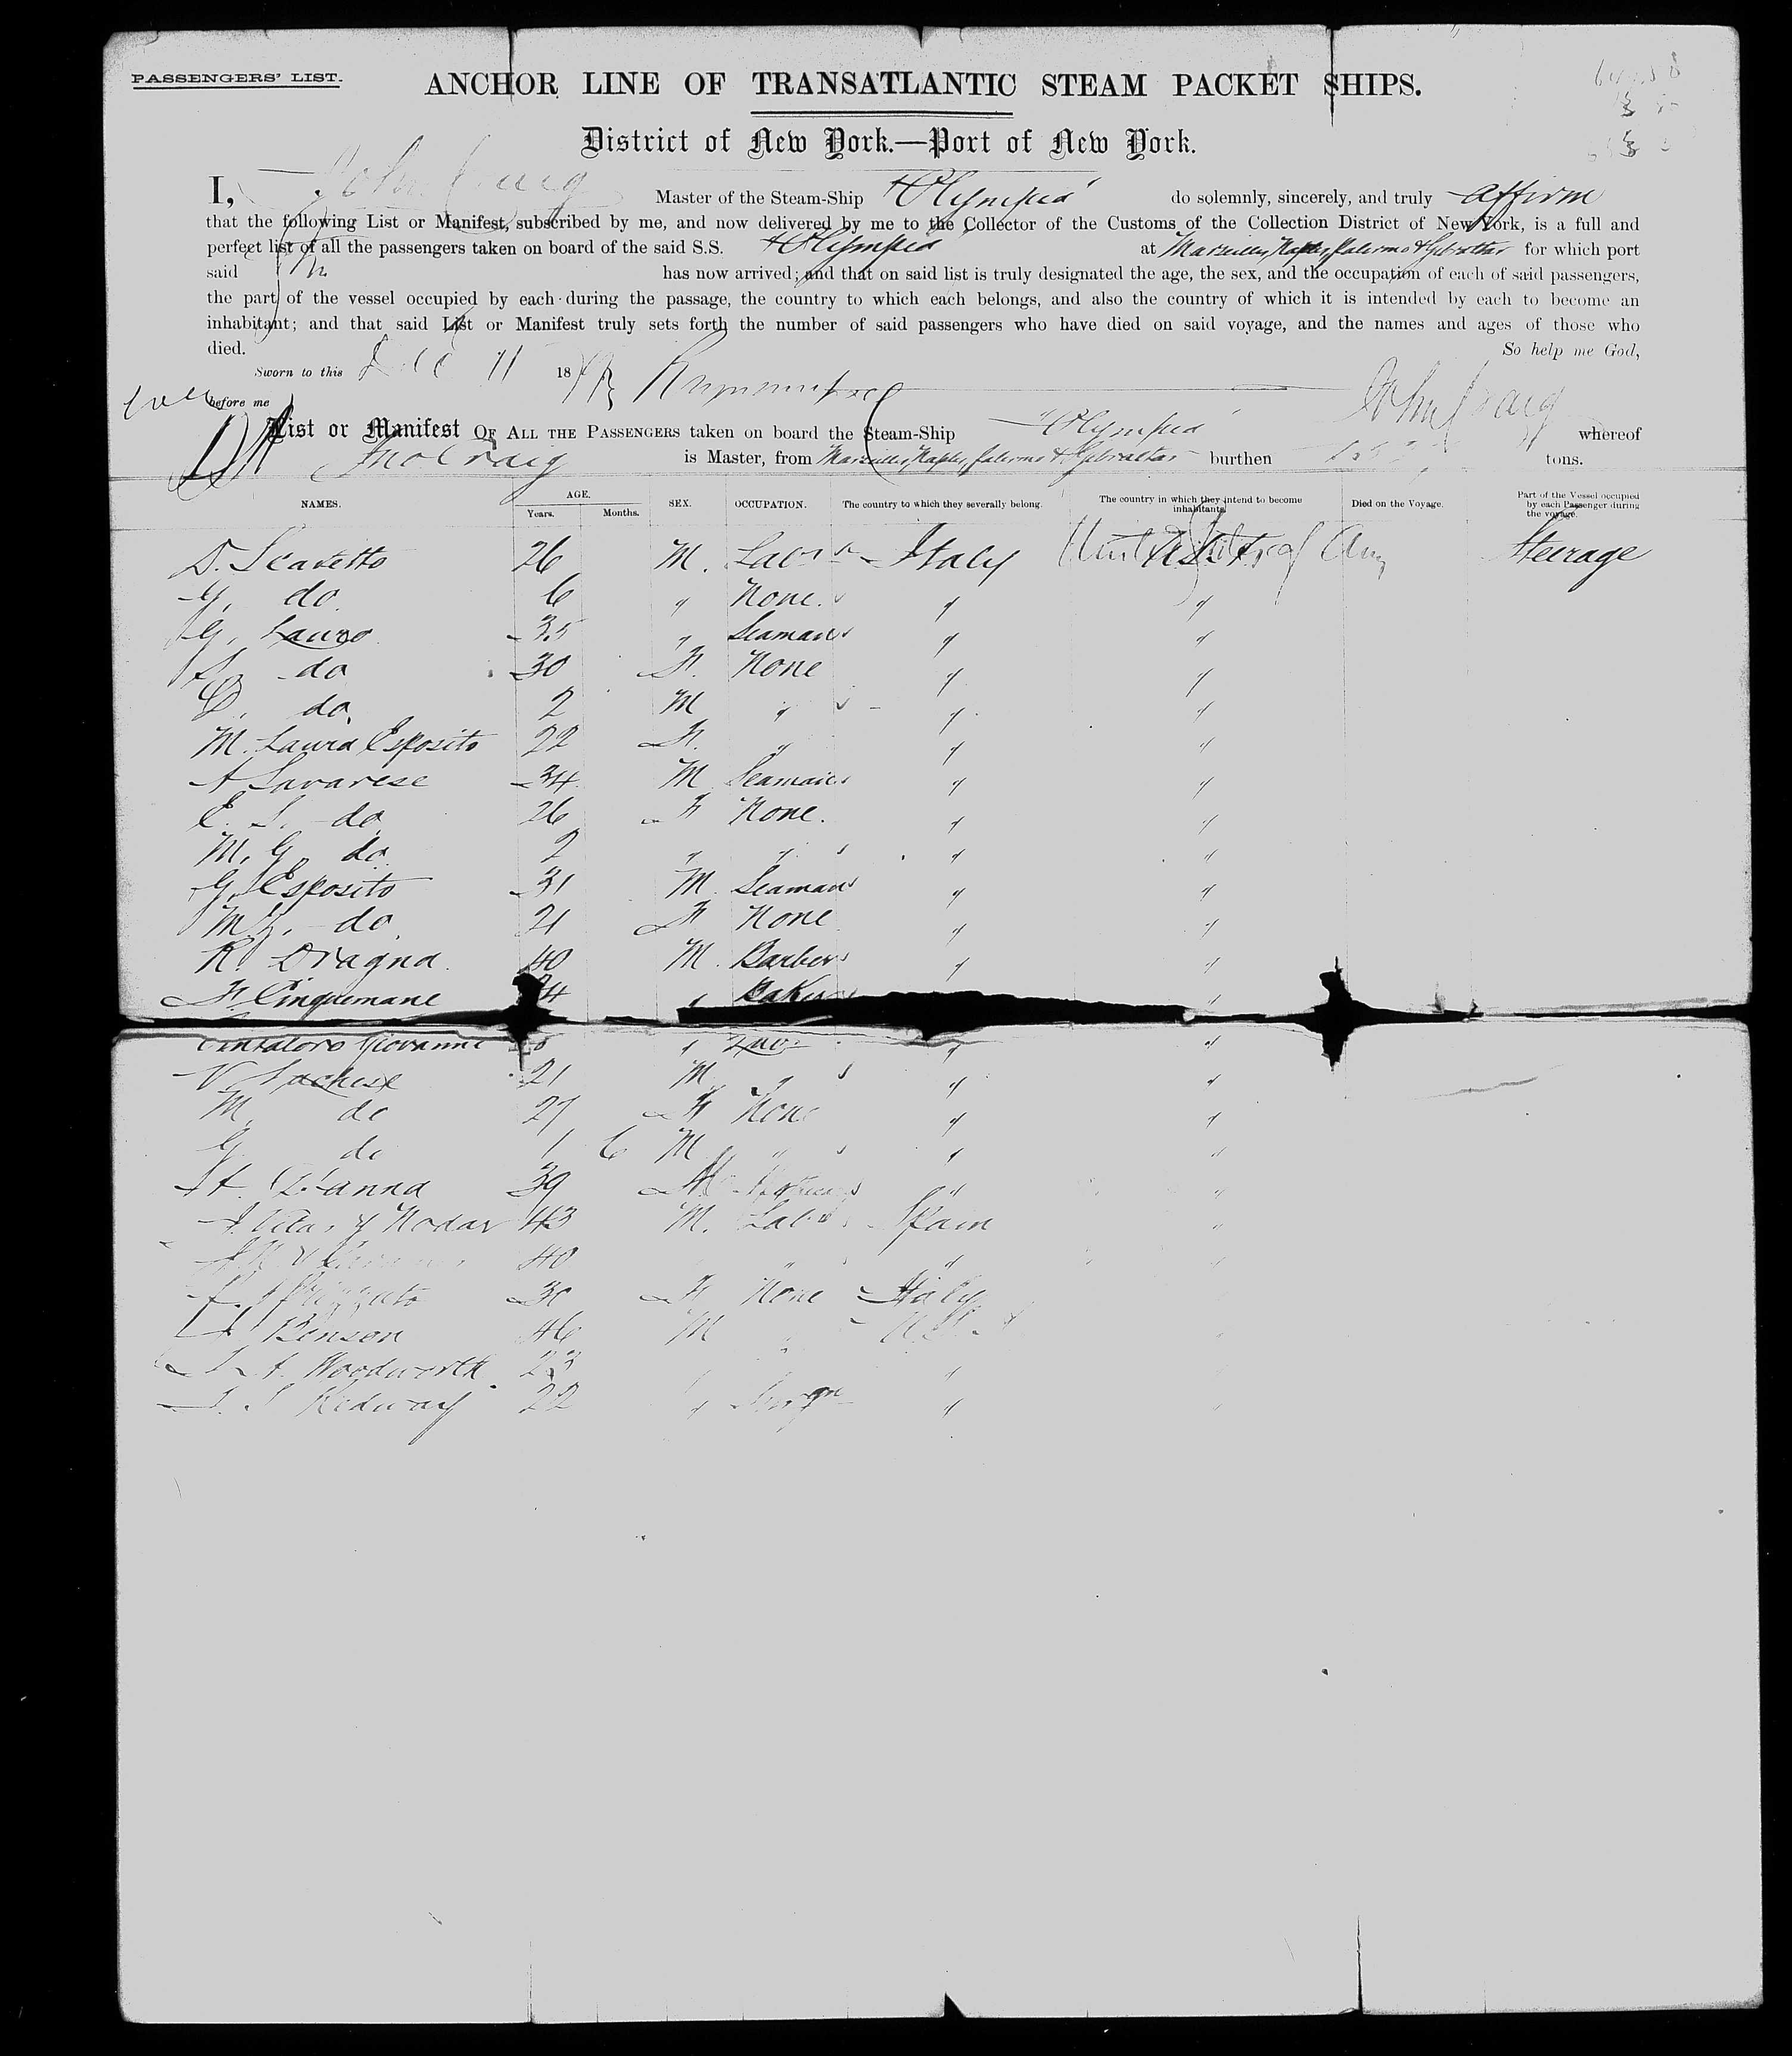 PASSENGERS' LIST.
ANCHOR LINE OF TRANSATLANTIC STEAM PACKET SHIPS.
District of New York.—Port of New York.
I, John Craig Master of the Steam-Ship "Olympia" do solemnly, sincerely, and truly affirm
that the following List or Manifest, subscribed by me, and now delivered by me to the Collector of the Customs of the Collection District of New York, is a full and
perfect list of all the passengers taken on board of the said S.S. "Olympia" at Marseilles, Naples, Palermo & Gibraltar for which port
said has now arrived; and that on said list is truly designated the age, the sex, and the occupation of each of said passengers,
the part of the vessel occupied by each during the passage, the country to which each belongs, and also the country of which it is intended by each to become an
inhabitant; and that said List or Manifest truly sets forth the number of said passengers who have died on said voyage, and the names and ages of those who
died. So help me God,
Sworn to this Dec 11 18
before me John Craig
List or Manifest OF ALL THE PASSENGERS taken on board the Steam-Ship "Olympia" whereof
Jno Craig is Master, from Marseilles, Naples, Palermo & Gibraltar burthen tons.
NAMES. AGE. Years. Months. SEX. OCCUPATION. The country to which they severally belong. The country in which they intend to become inhabitants. Died on the Voyage. Part of the Vessel occupied by each Passenger during the voyage.
D. Scavetto 26 M. Labr Italy United States of Am Steerage
G. do. 6 " None. " "
G. Lauro 35 " Seaman " "
S. do 30 F. None " "
do. 2 M " " "
M. Laura Esposito 22 F. " " "
A Savarese 34 M Seaman " "
E. S. do 26 F None. " "
M. G. do. 2 " " " "
G. Esposito 31 M. Seaman " "
do 21 F None " "
R. Dragna. 40 M. Barber " "
F. Cinquemane 24 " Baker "
Giovanni " Lab " "
V. 21 M " " "
M. do 27 F None " "
G. do 1 6 M " " "
39 " "
y Nodar 43 M. Lab Spain "
40 " " "
30 F None Italy
Benson 46 M "
Woodworth 23 "
Kidway 22 " "